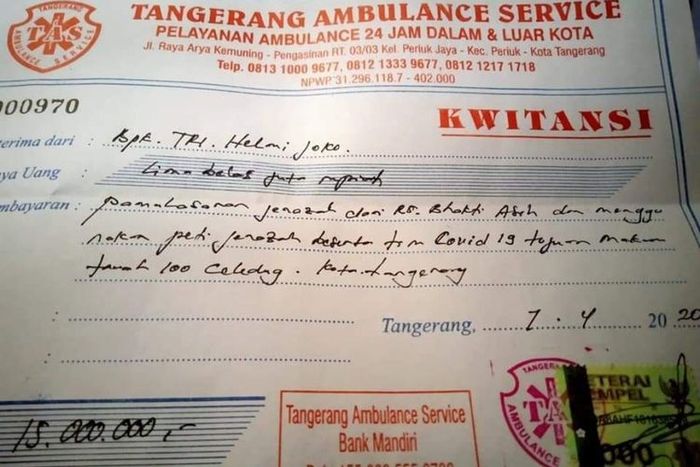 TANGERANG AMBULANCE SERVICE
PELAYANAN AMBULANCE 24 JAM DALAM & LUAR KOTA
Jl. Raya Arya Kemuning - Pengasinan RT. 03/03 Kel. Periuk Jaya - Kec. Periuk - Kota Tangerang
Telp. 0813 1000 9677, 0812 1333 9677, 0812 1217 1718
NPWP 31.296.118.7 - 402.000
TAS
AMBULANCE SERVICE
000970
KWITANSI
terima dari : Bpk. TRI. Helmi Joko.
ya Uang : Lima belas juta rupiah
mbayaran : pemulasaran jenazah dari RS. Bhakti Asih dan menggu
nakan peti jenazah beserta tim Covid 19 tujuan makam
tanah 100 Ciledug. Kota. tangerang
Tangerang, 7 - 4 2020
15.000.000,-
Tangerang Ambulance Service
Bank Mandiri
TANGERANG
TAS
METERAI
TEMPEL